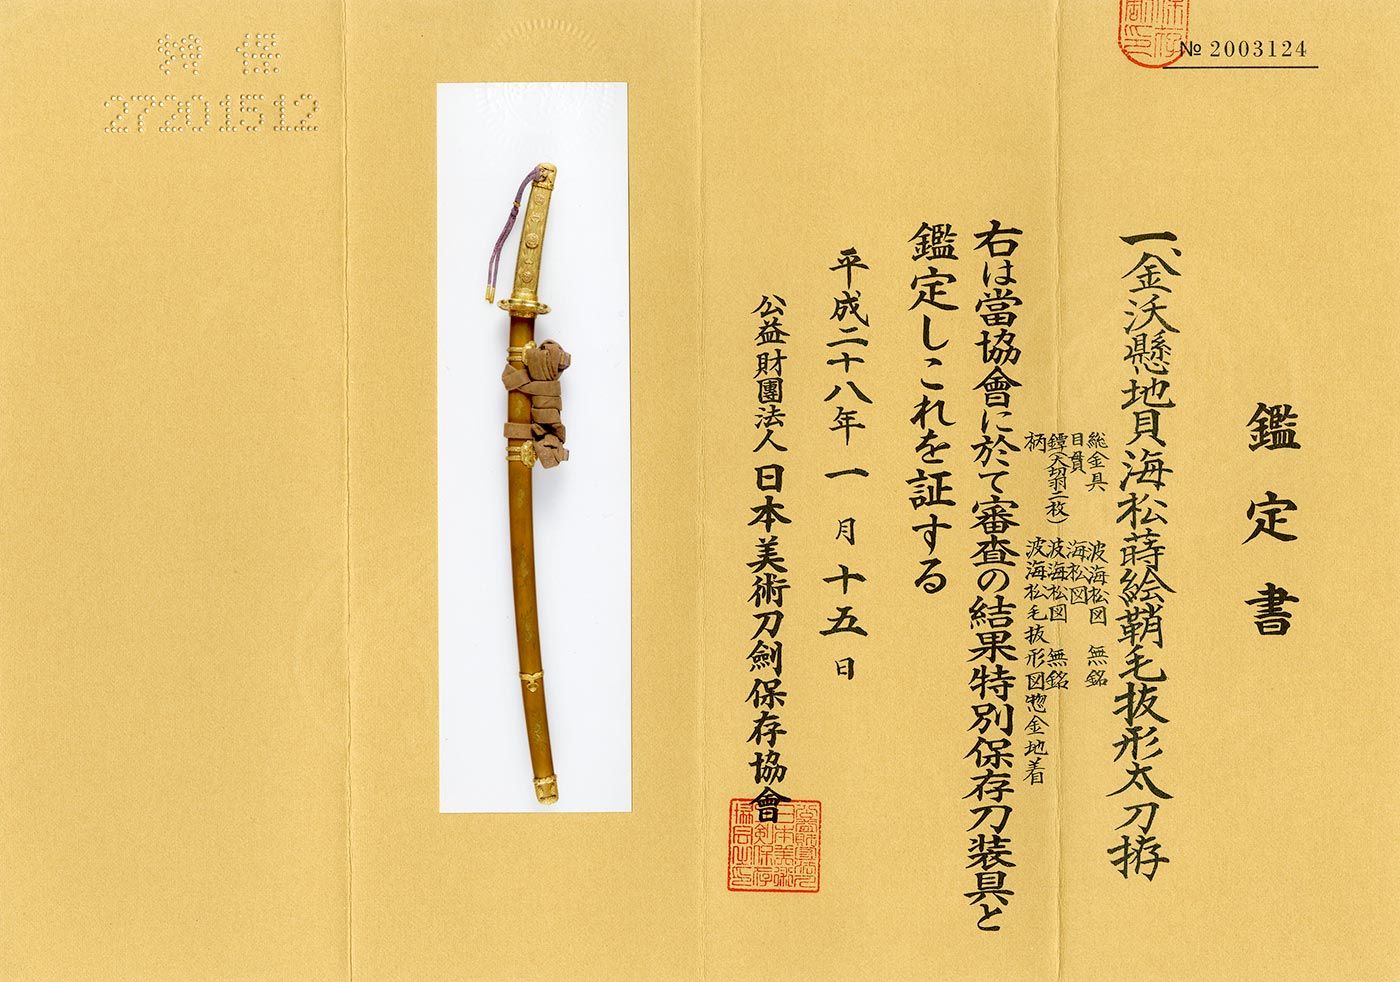 № 2003124
鑑定書
一、金沃懸地貝海松蒔絵鞘毛抜形太刀拵
総金具 波海松図 無銘
目貫 海松図
鐔(大切羽二枚) 波海松図 無銘
柄 波海松毛抜形図惣金地着
右は當協會に於て審査の結果特別保存刀装具と
鑑定しこれを証する
平成二十八年一月十五日
公益財團法人日本美術刀劍保存協會
特保
27201512